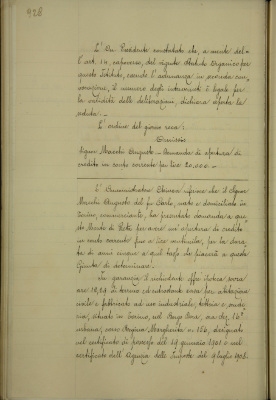 928
Il Sig. Presidente constatato che, a mente del-
l'art. 14, capoverso, del vigente Statuto Organico per
questo Istituto, essendo l'adunanza in seconda con-
vocazione, il numero degli intervenuti è legale per
la validità delle deliberazioni, dichiara aperta la
seduta.
L'ordine del giorno reca:
Omissis
Signor Macchi Augusto - Domanda di apertura di
credito in conto corrente per lire 20.000.-
L'Amministratore riferisce che il Signor
Macchi Augusto del fu Carlo, nato e domiciliato in
Torino, commerciante, ha presentato domanda a que-
sto Monte di Pietà per avere un'apertura di credito
in conto corrente fino a lire ventimila, per la dura-
ta di anni cinque a quel tasso che piacerà a questa
Giunta di determinare.
In garanzia il richiedente offre ipoteca sopra
are 18,29 di terreno ed entrostante casa per abitazione
civile e fabbricato ad uso industriale, tettoia e giardi-
no, situato in Torino, nel Borgo Dora, sez. 16ª
urbana, corso Regina Margherita n. 156, designato
nel certificato di possesso del 19 gennaio 1901 e nel
certificato dell'Agenzia delle Imposte del luglio 1903.